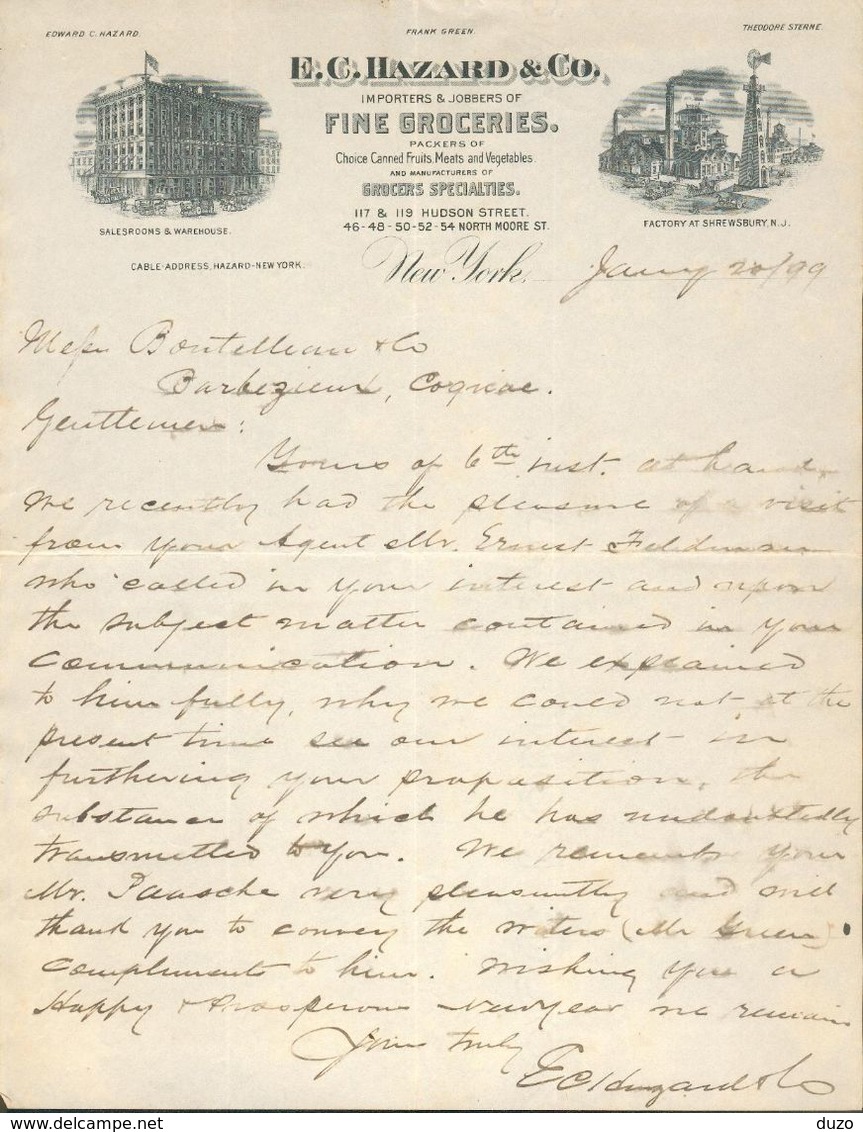 EDWARD C. HAZARD.
FRANK GREEN.
THEODORE STERNE.
E. C. HAZARD & CO.
IMPORTERS & JOBBERS OF
FINE GROCERIES.
PACKERS OF
Choice Canned Fruits, Meats and Vegetables.
AND MANUFACTURERS OF
GROCERS SPECIALTIES.
117 & 119 HUDSON STREET.
46-48-50-52-54 NORTH MOORE ST.
SALESROOMS & WAREHOUSE.
FACTORY AT SHREWSBURY, N.J.
CABLE-ADDRESS, HAZARD-NEW YORK.
New York, Jany 20/99
Mess Boutelleau & Co
Barbezieux, Cognac.
Gentlemen:
Yours of 6th inst. at hand.
We recently had the pleasure of a visit
from your Agent Mr. Ernest Feldmann
who called in your interest and upon
the subject matter contained in your
communication. We explained
to him fully, why we could not at the
present time see our interest in
furthering your proposition, the
substance of which he has undoubtedly
transmitted to you. We remember your
Mr. Paasche very pleasantly and will
thank you to convey the writers (Mr Green)
compliments to him. Wishing you a
Happy & Prosperous New year we remain
Yours truly
E C Hazard & Co
duzo